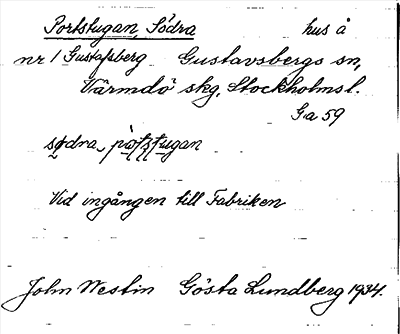 Portstugan, Södra hus å
nr 1 Gustafsberg Gustavsbergs sn,
Värmdö skg, Stockholms l.
Ga 59
södra
Vid ingången till Fabriken
John Westin Gösta Lundberg 1934.